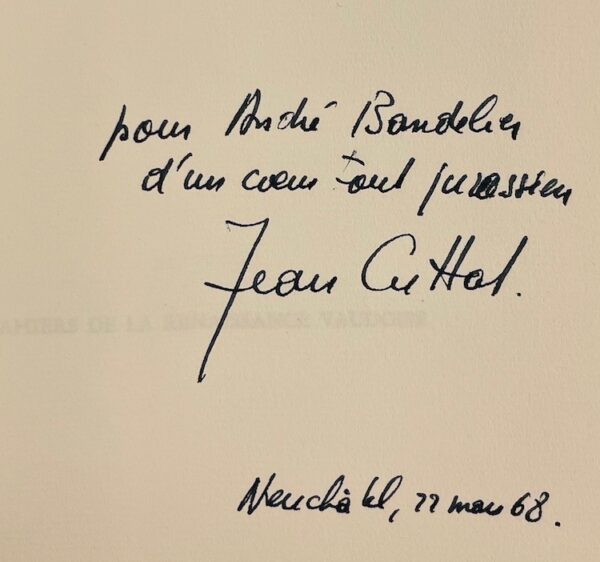 pour André Bandelier
d'un cœur tout jurassien
Jean Cuttat.
AHIERS DE LA RENAISSANCE VAUDOISE
Neuchâtel, 22 mars 68.